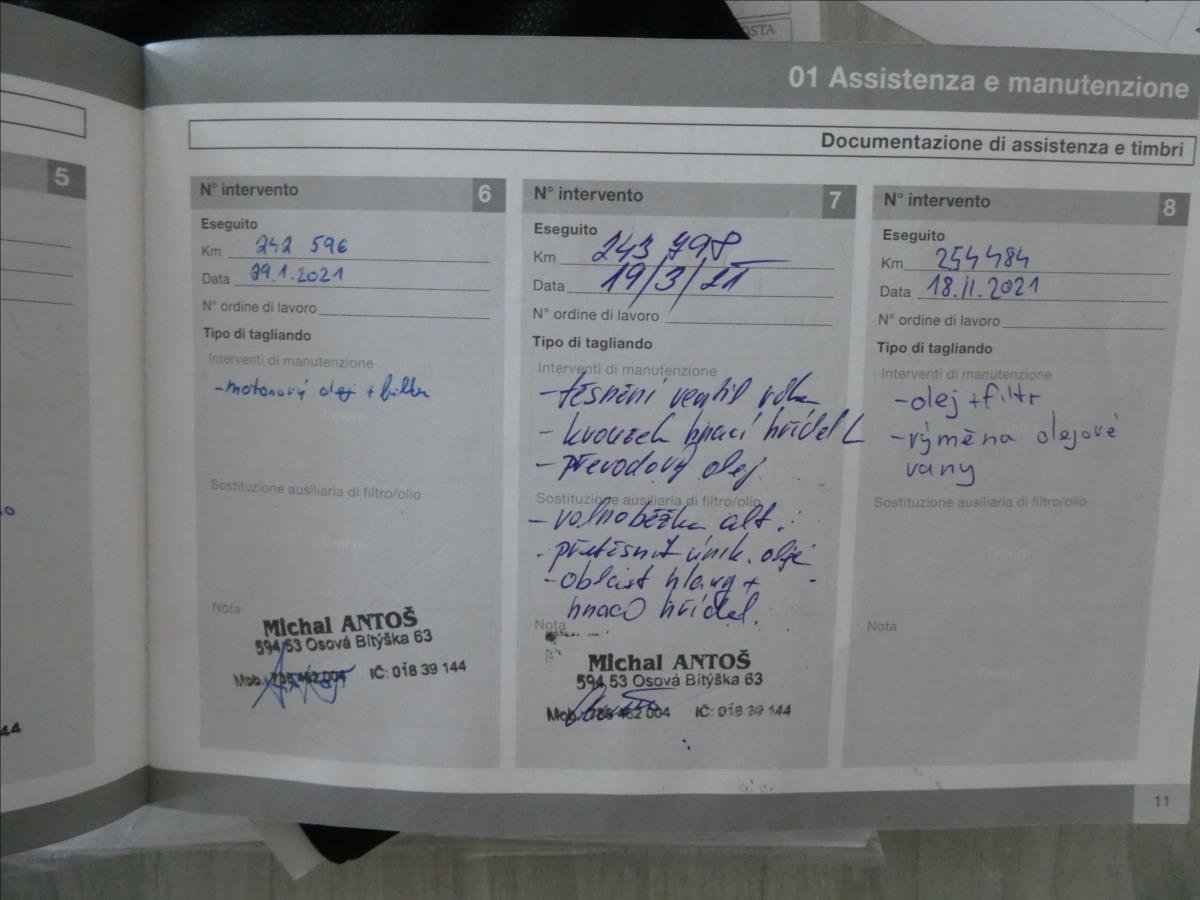 OSTA
01 Assistenza e manutenzione
Documentazione di assistenza e timbri
5
44
N° intervento 6
Eseguito
Km 242 596
Data 29.1.2021
N° ordine di lavoro
Tipo di tagliando
Interventi di manutenzione
-motorový olej + filtr
Timbro
Sostituzione ausiliaria di filtro/olio
Timbro
Nota
Michal ANTOŠ
594 53 Osová Bítýška 63
Mob.: 736 462 004 IČ: 018 39 144
N° intervento 7
Eseguito
Km 243 798
Data 19/3/21
N° ordine di lavoro
Tipo di tagliando
Interventi di manutenzione
- těsnění ventil víka
- kroužek hnací hřídel L
- převodový olej
Sostituzione ausiliaria di filtro/olio
- volnoběžka alt.
- přetěsnit únik. oleje
- oblast hlavy +
hnací hřídel.
Nota
Michal ANTOŠ
594 53 Osová Bítýška 63
Mob.: 736 462 004 IČ: 018 39 144
N° intervento 8
Eseguito
Km 254 484
Data 18.11.2021
N° ordine di lavoro
Tipo di tagliando
Interventi di manutenzione
-olej +filtr
-výměna olejové
vany
Sostituzione ausiliaria di filtro/olio
Timbro
Nota
Timbro
11